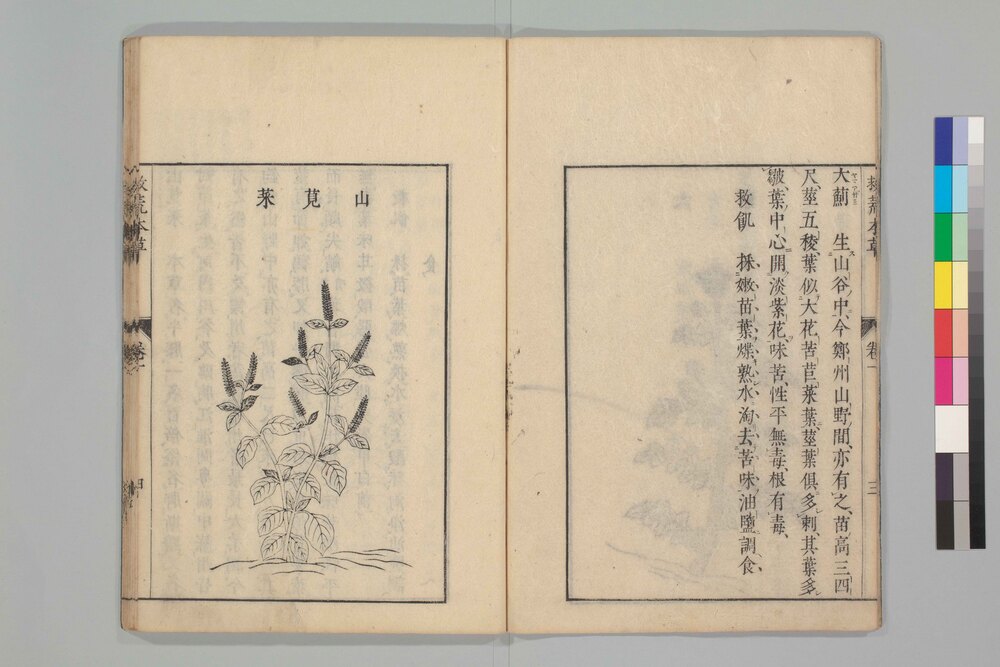 救荒本草
卷一
三
大薊 生山谷中、今鄭州山野間、亦有之、苗高三四
尺、莖五稜、葉似大花苦苣菜葉、莖葉俱多刺、其葉多
皺、葉中心開淡紫花、味苦、性平無毒、根有毒、
救飢 採嫩苗葉、煠熟、水淘去苦味、油鹽調食、
山莧菜
救荒本草
卷一
四